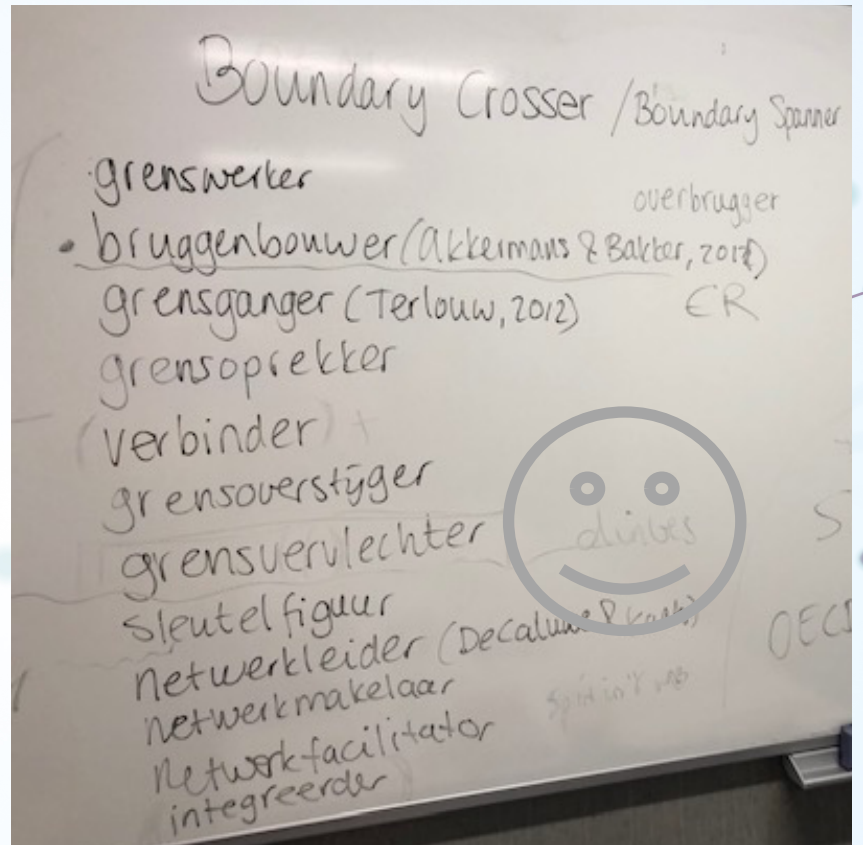 Boundary Crosser / Boundary Spanner
grenswerker
overbrugger
bruggenbouwer (Akkermans & Bakker, 2012)
grensganger (Terlouw, 2012)
ER
grensoprekker
(verbinder) +
grensoverstijger
grensvervlechter
sleutelfiguur
netwerkleider (Decaluwe &
netwerkmakelaar
netwerkfacilitator
integreerder
OECD